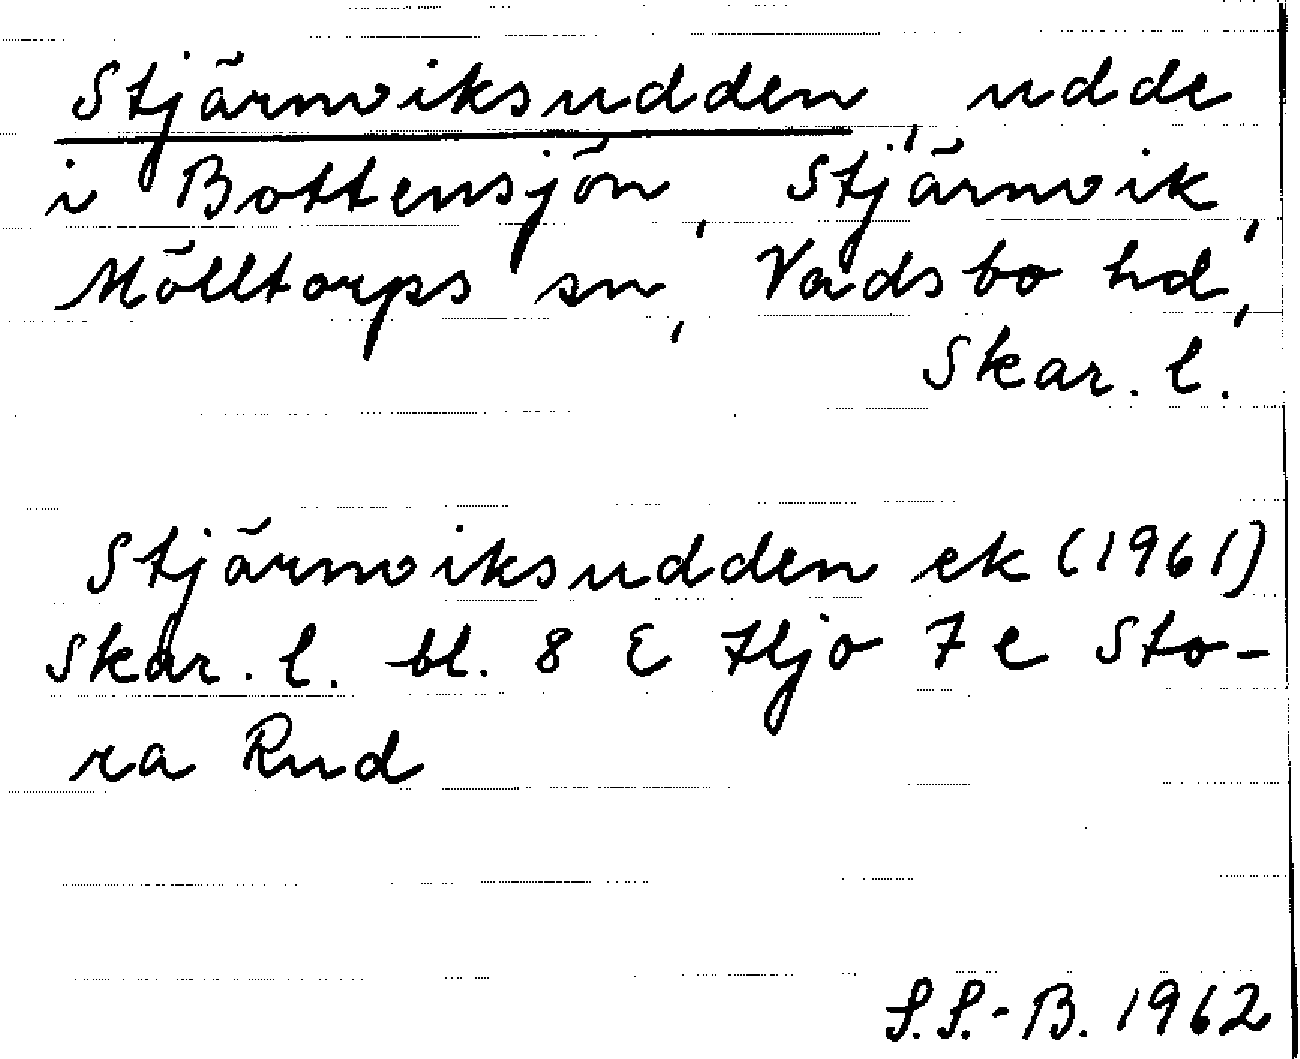 Stjärnviksudden, udde
i Bottensjön, Stjärnvik,
Mölltorps sn, Vadsbo hd,
Skar. l.
Stjärnviksudden ek (1961)
Skar. l. bl. 8 E Hjo 7 e Sto-
ra Rud
S.S.-B. 1962